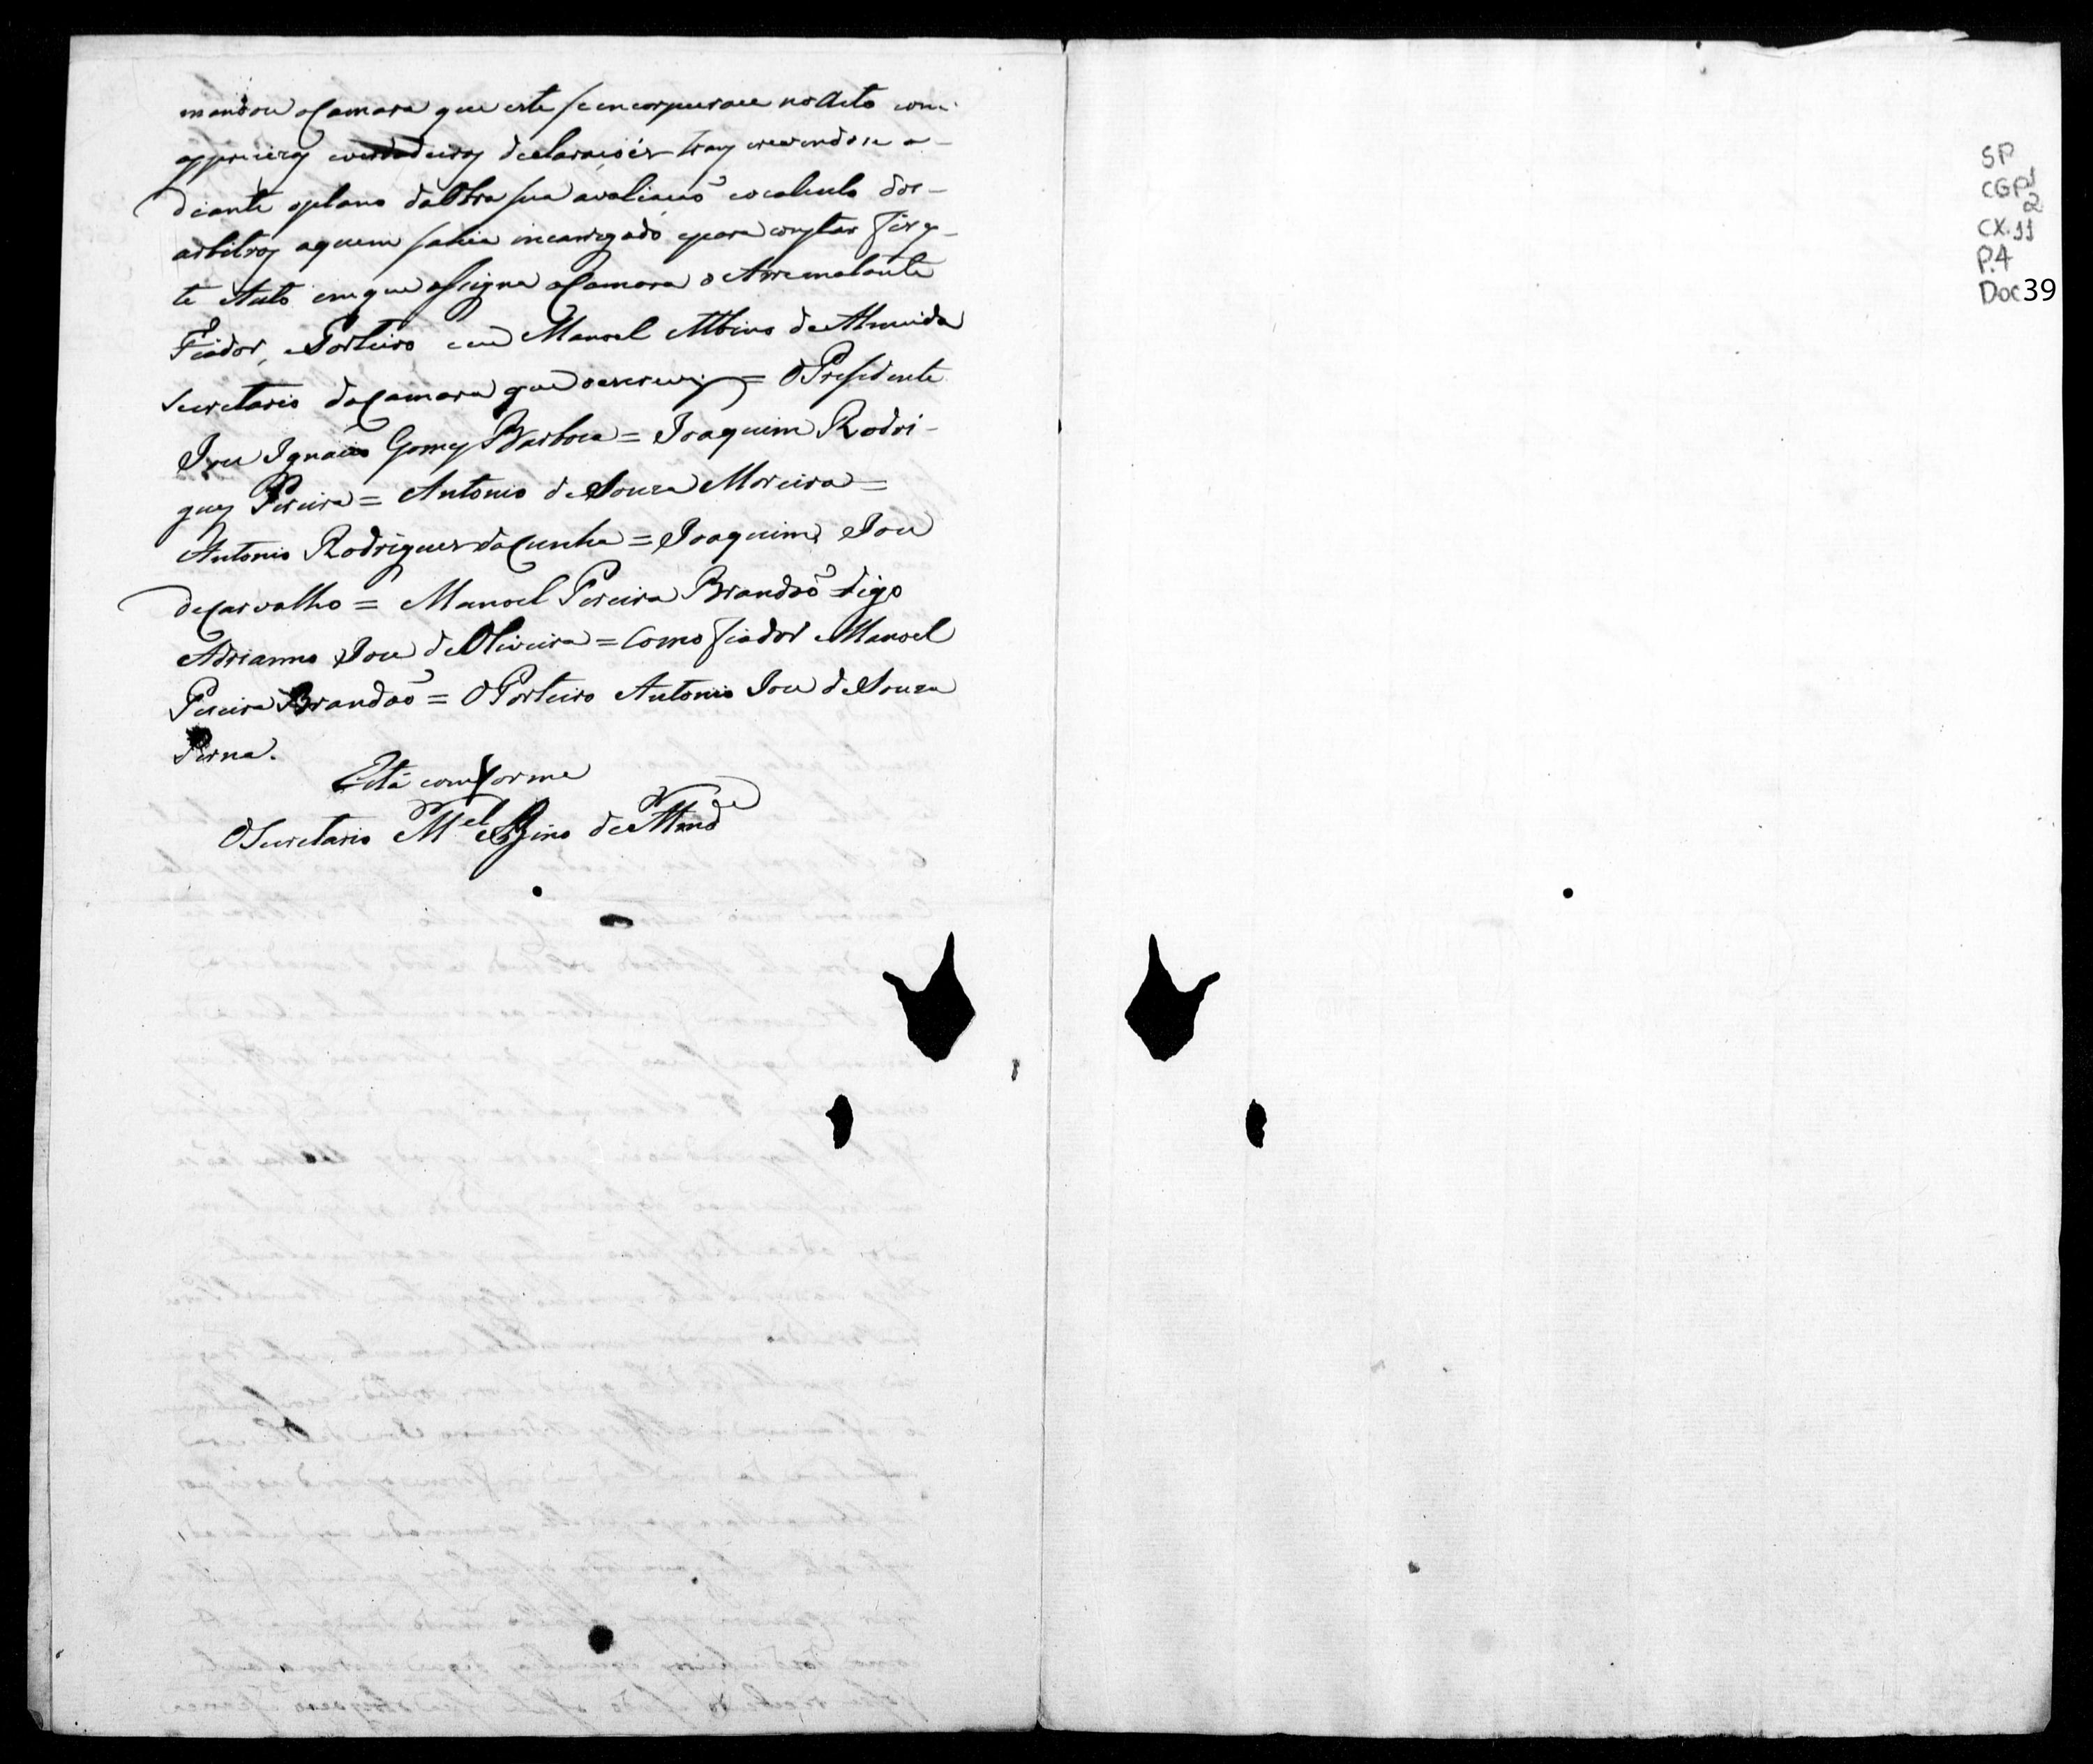 mandou a Camara que este se encorpurace no Acto com
as preciezas e verdadeiras declaraçoẽs transcrevendose a-
diante o plano da Obra sua avaliaçaõ e o calculo dos-
arbitros a quem se avia incarregado, e para constar fis es-
te Auto em que assigna a Camara o Arrematante
Fiador, e Porteiro e eu Manoel Albino de Almeida
Secretario da Camara que o escrevy = O Presidente
Joze Ignacio Gomes Barboza = Joaquim Rodri-
gues Pereira = Antonio de Souza Moreira =
Antonio Rodrigues da Cunha = Joaquim Joze
de Carvalho = Manoel Pereira Brandaõ = digo
Adrianno Joze de Oliveira = Como fiador Manoel
Pereira Brandaõ = O Porteiro Antonio Joze de Souza
Perna.
Está comforme
O Secretario M.el Albino de Almd.a
SP
CGP1
2
CX.11
P.4
Doc 39